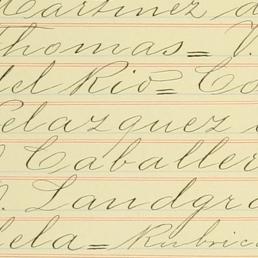 Martinez d
Thomas= V.
del Rio= Co
Velazquez
Caballer
D. Landgra
lela= Rubric